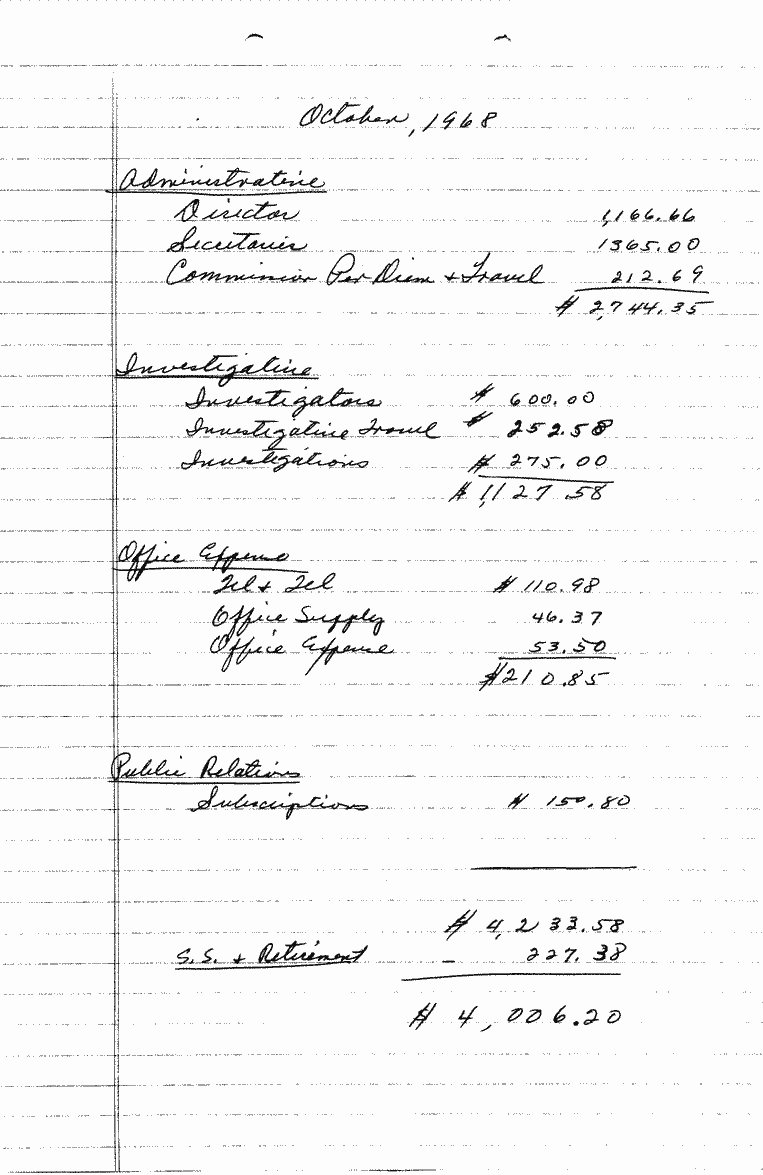 October, 1968
Administrative
Director 1,166.66
Secretaries 1365.00
Commission Per Diem + Travel 212.69
$ 2,744.35
Investigative
Investigators $ 600.00
Investigative Travel $ 252.58
Investigations $ 275.00
$ 1,127.58
Office Expense
Tel + Tel $ 110.98
Office Supply 46.37
Office Expense 53.50
$210.85
Public Relations
Subscriptions $ 150.80
$ 4,233.58
S.S. + Retirement - 227.38
$ 4,006.20